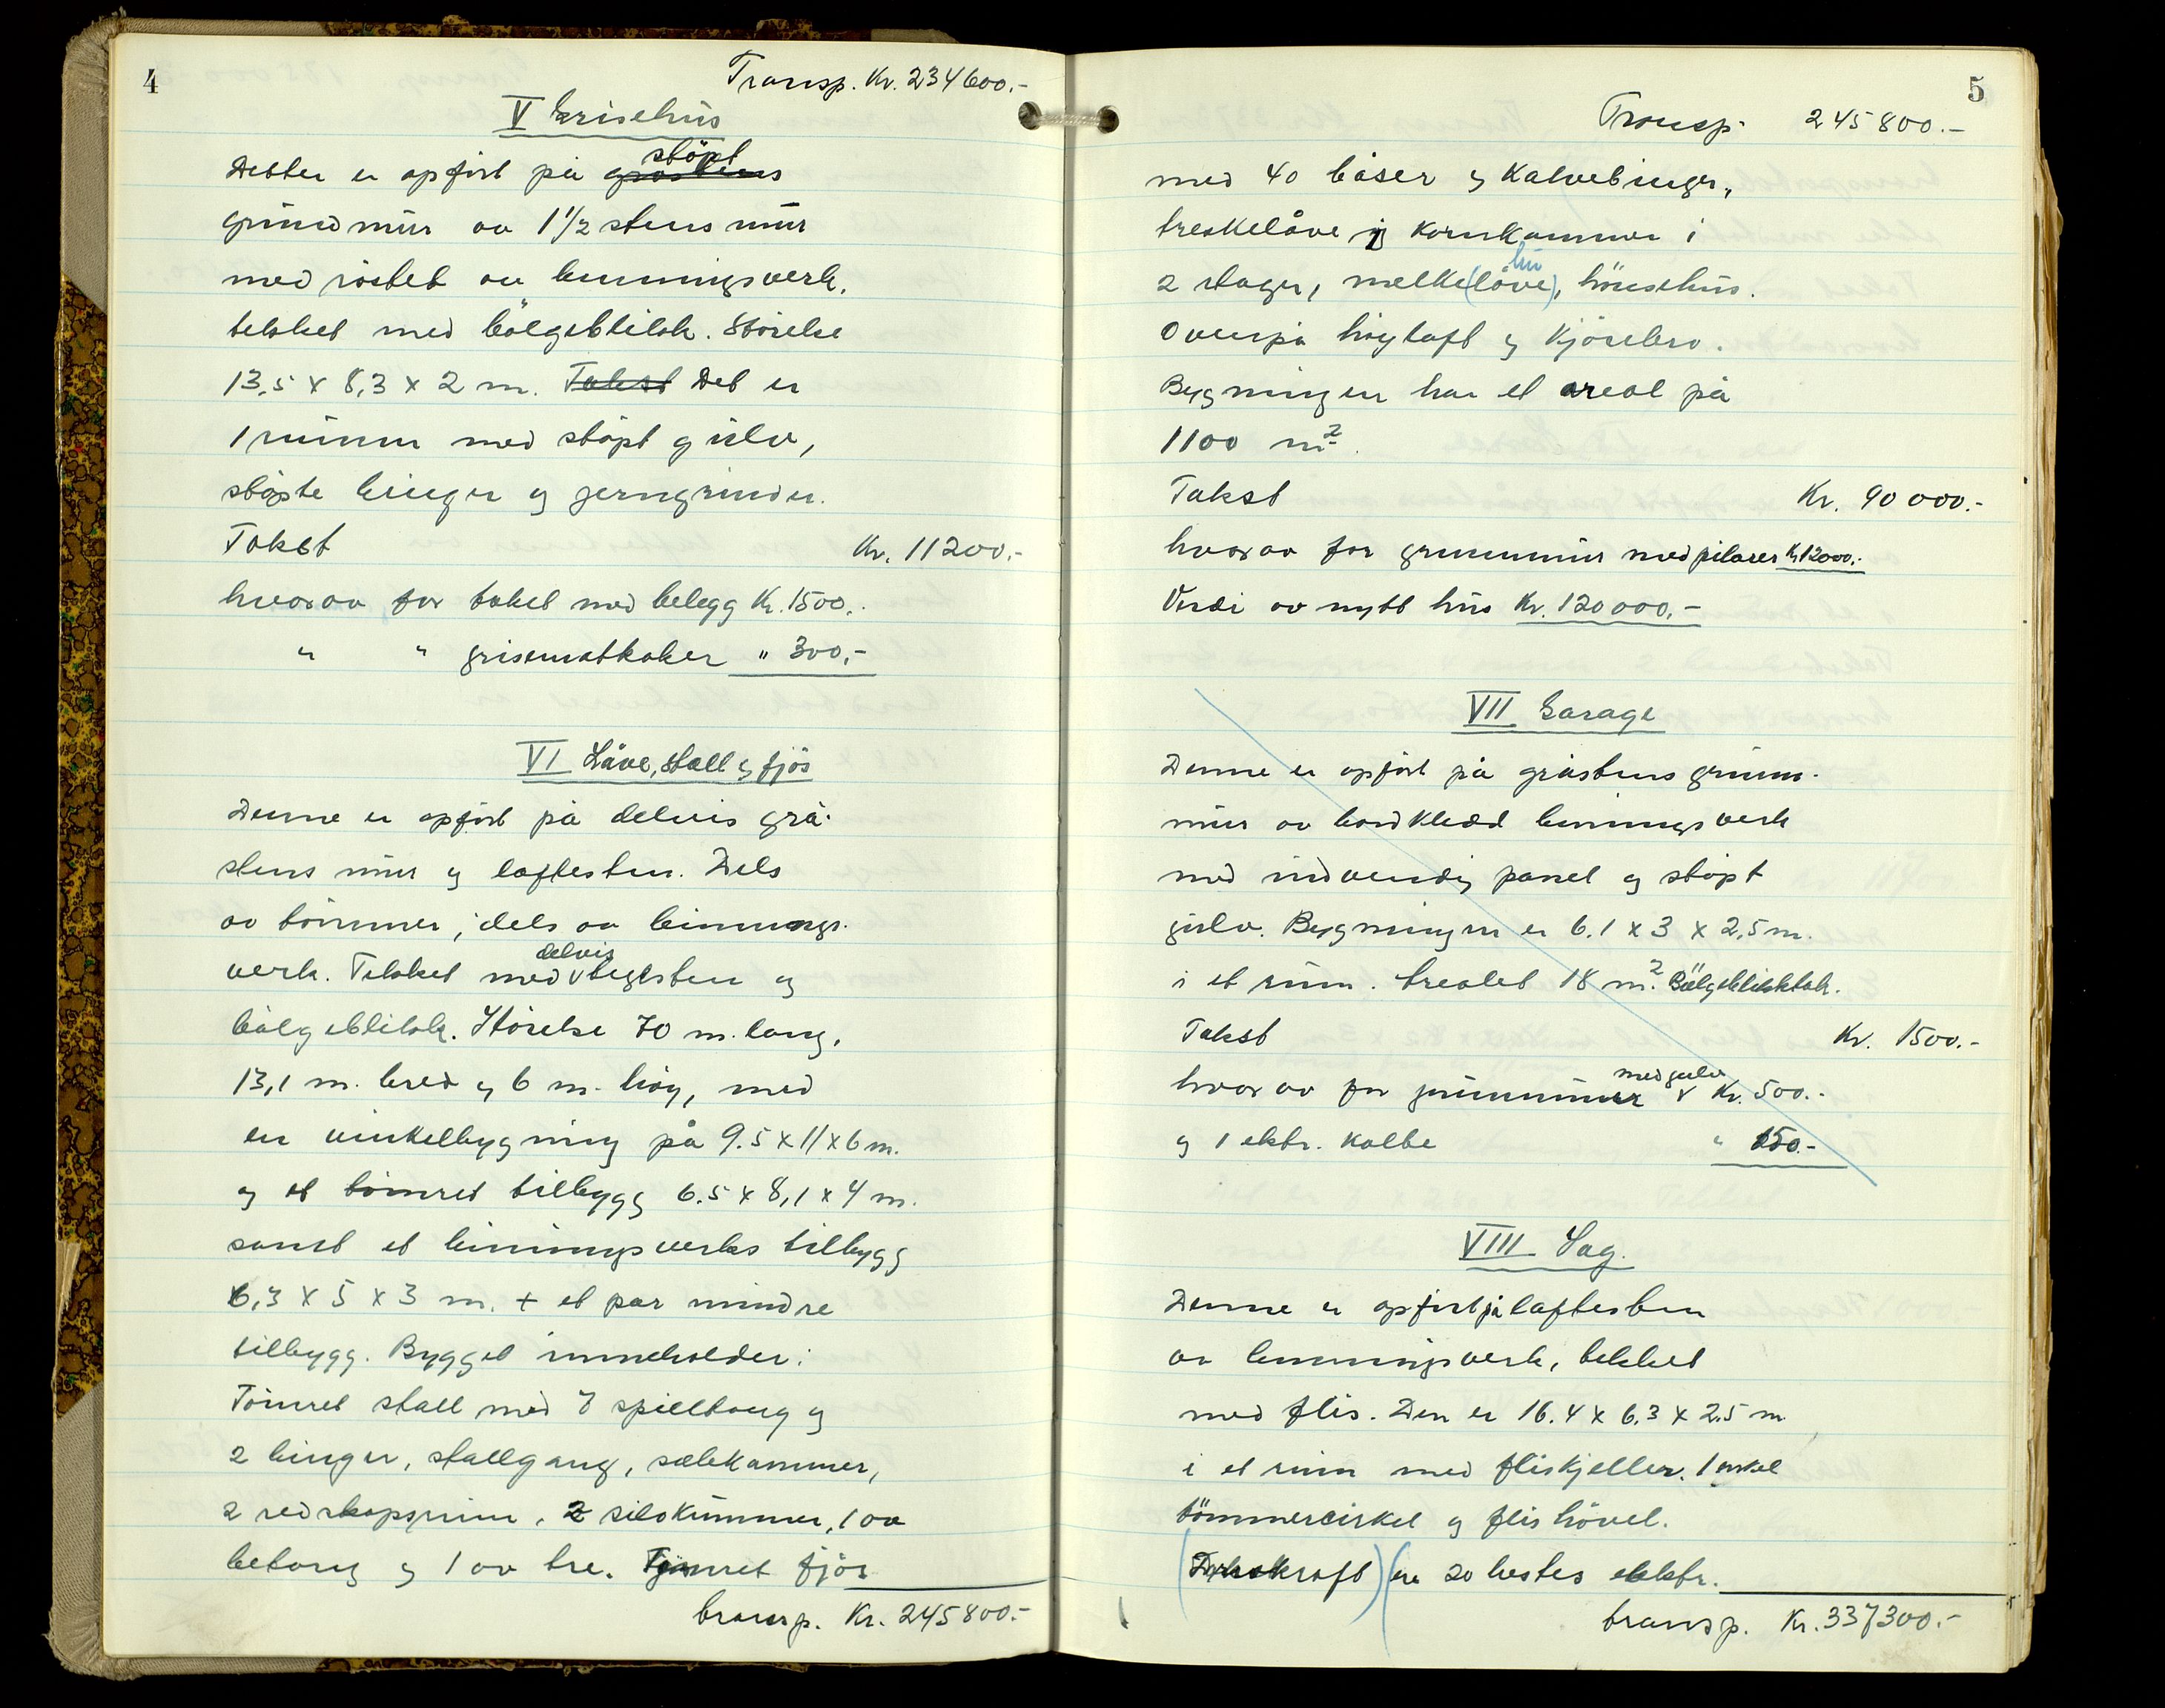 4
Transp. Kr. 234600.-
V Grisehus
Dette er opført på gråstens støpt
grundmur av 1 1/2 stens mur
med røstet av binningsverk,
tekket med bølgeblikk. Størelse
13,5 x 8,3 x 2 m. Takst Det er
1 rum med støpt gulv,
støpte binger og jerngrinder.
Takst Kr. 11200.-
hvorav for taket med belegg Kr. 1500.-
" " grisematkoker " 300,-
VI Låve, stall og fjøs
Denne er opført på delvis grå-
stens mur og laftesten. Dels
av tømmer, dels av binnings-
verk. Tekket med delvis teglsten og
bølgeblikk. Størelse 70 m. lang,
13,1 m. bred og 6 m. høy, med
en vinkelbygning på 9.5 x 11 x 6 m.
og et tømret tilbygg 6.5 x 8,1 x 4 m.
samt et binningsverks tilbygg
6,3 x 5 x 3 m. + et par mindre
tilbygg. Bygget inneholder:
Tømret stall med 7 spilltaug og
2 binger, stallgang, selekammer,
2 redskapsrum, 2 silokummer, 1 av
betong og 1 av tre. Tømret fjøs
transp. Kr. 245800.-
5
Transp. 245800.-
med 40 båser og kalvebinger,
treskelåve og kornkammer i
2 etager, melke(låve) bu, hönsehus.
Ovenpå høyloft og kjørebro.
Bygningen har et areal på
1100 m².
Takst Kr. 90 000.-
hvorav for grunnmur med pilarer Kr 12000.-
Verdi av nytt hus Kr. 120000.-
VII Garage
Denne er opført på gråstens grunn-
mur av bordkledd binningsverk
med indvendig panel og støpt
gulv. Bygningen er 6.1 x 3 x 2,5 m.
i et rum. Arealet 18 m². Bölgeblikktak.
Takst Kr. 1500.-
hvorav for grunnmur med gulv Kr. 500.-
og 1 ektr. kolbe " 150.-
VIII Sag.
Denne er opført på laftesten
av binningsverk, tekket
med flis. Den er 16.4 x 6.3 x 2.5 m
i et rum med fliskjeller. 1 enkel
tömmercirkel og flishøvel.
(Drivkraft) (en 20 hestes elektr.
transp. Kr. 337300.-